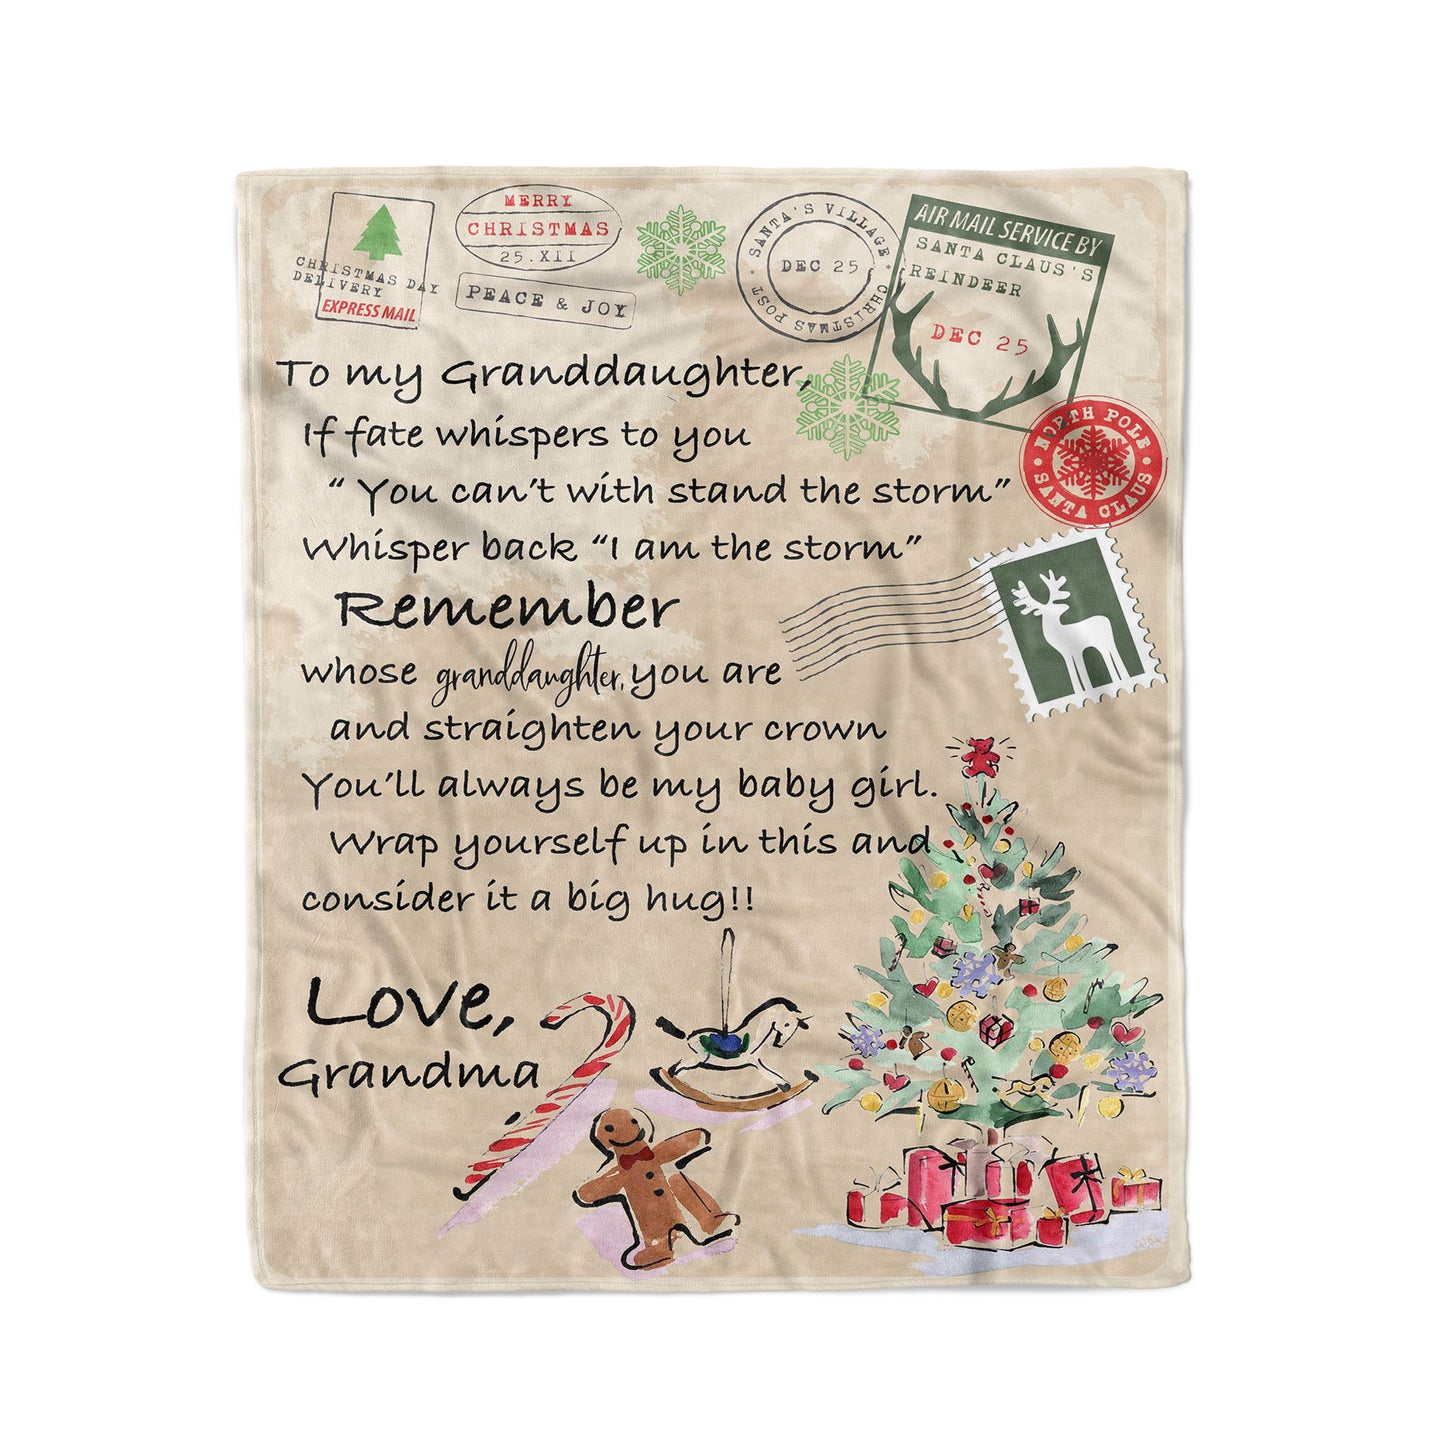 CHRISTMAS DAY
DELIVERY
EXPRESS MAIL
MERRY
CHRISTMAS
25.XII
PEACE & JOY
SANTA'S VILLAGE
DEC 25
CHRISTMAS POST
AIR MAIL SERVICE BY
SANTA CLAUS'S
REINDEER
DEC 25
NORTH POLE
SANTA CLAUS
To my Granddaughter,
If fate whispers to you
" You can't with stand the storm"
Whisper back "I am the storm"
Remember
whose granddaughter, you are
and straighten your crown
You'll always be my baby girl.
Wrap yourself up in this and
consider it a big hug!!
Love,
Grandma